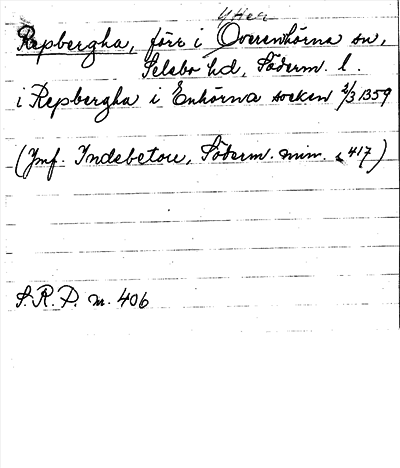 Ytter
Repbergha, förr i Överenhörna sn,
Selebo hd, Söderm. l.
i Repbergha i Enhörna socken 2/3 1359
(Jmf. Indebetou, Söderm. min. s 417)
S. R. P. n. 406